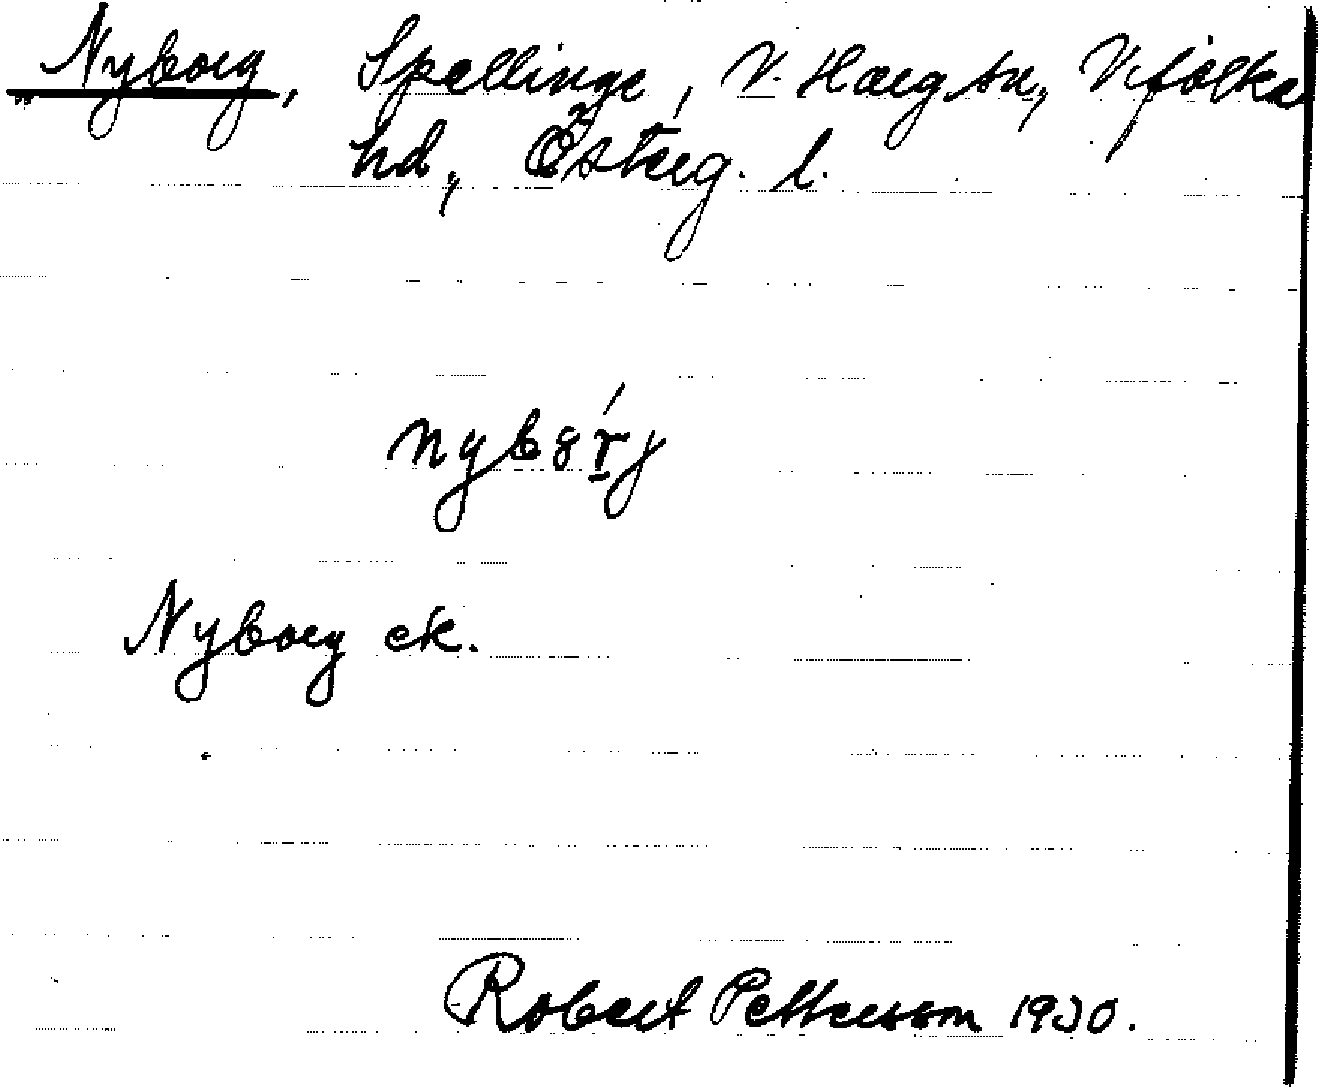 Nyborg, Spellinge, V. Harg sn, Vifolka
hd, Österg. l.
nybǫ́rj
Nyborg ek.
Robert Pettersson 1930.